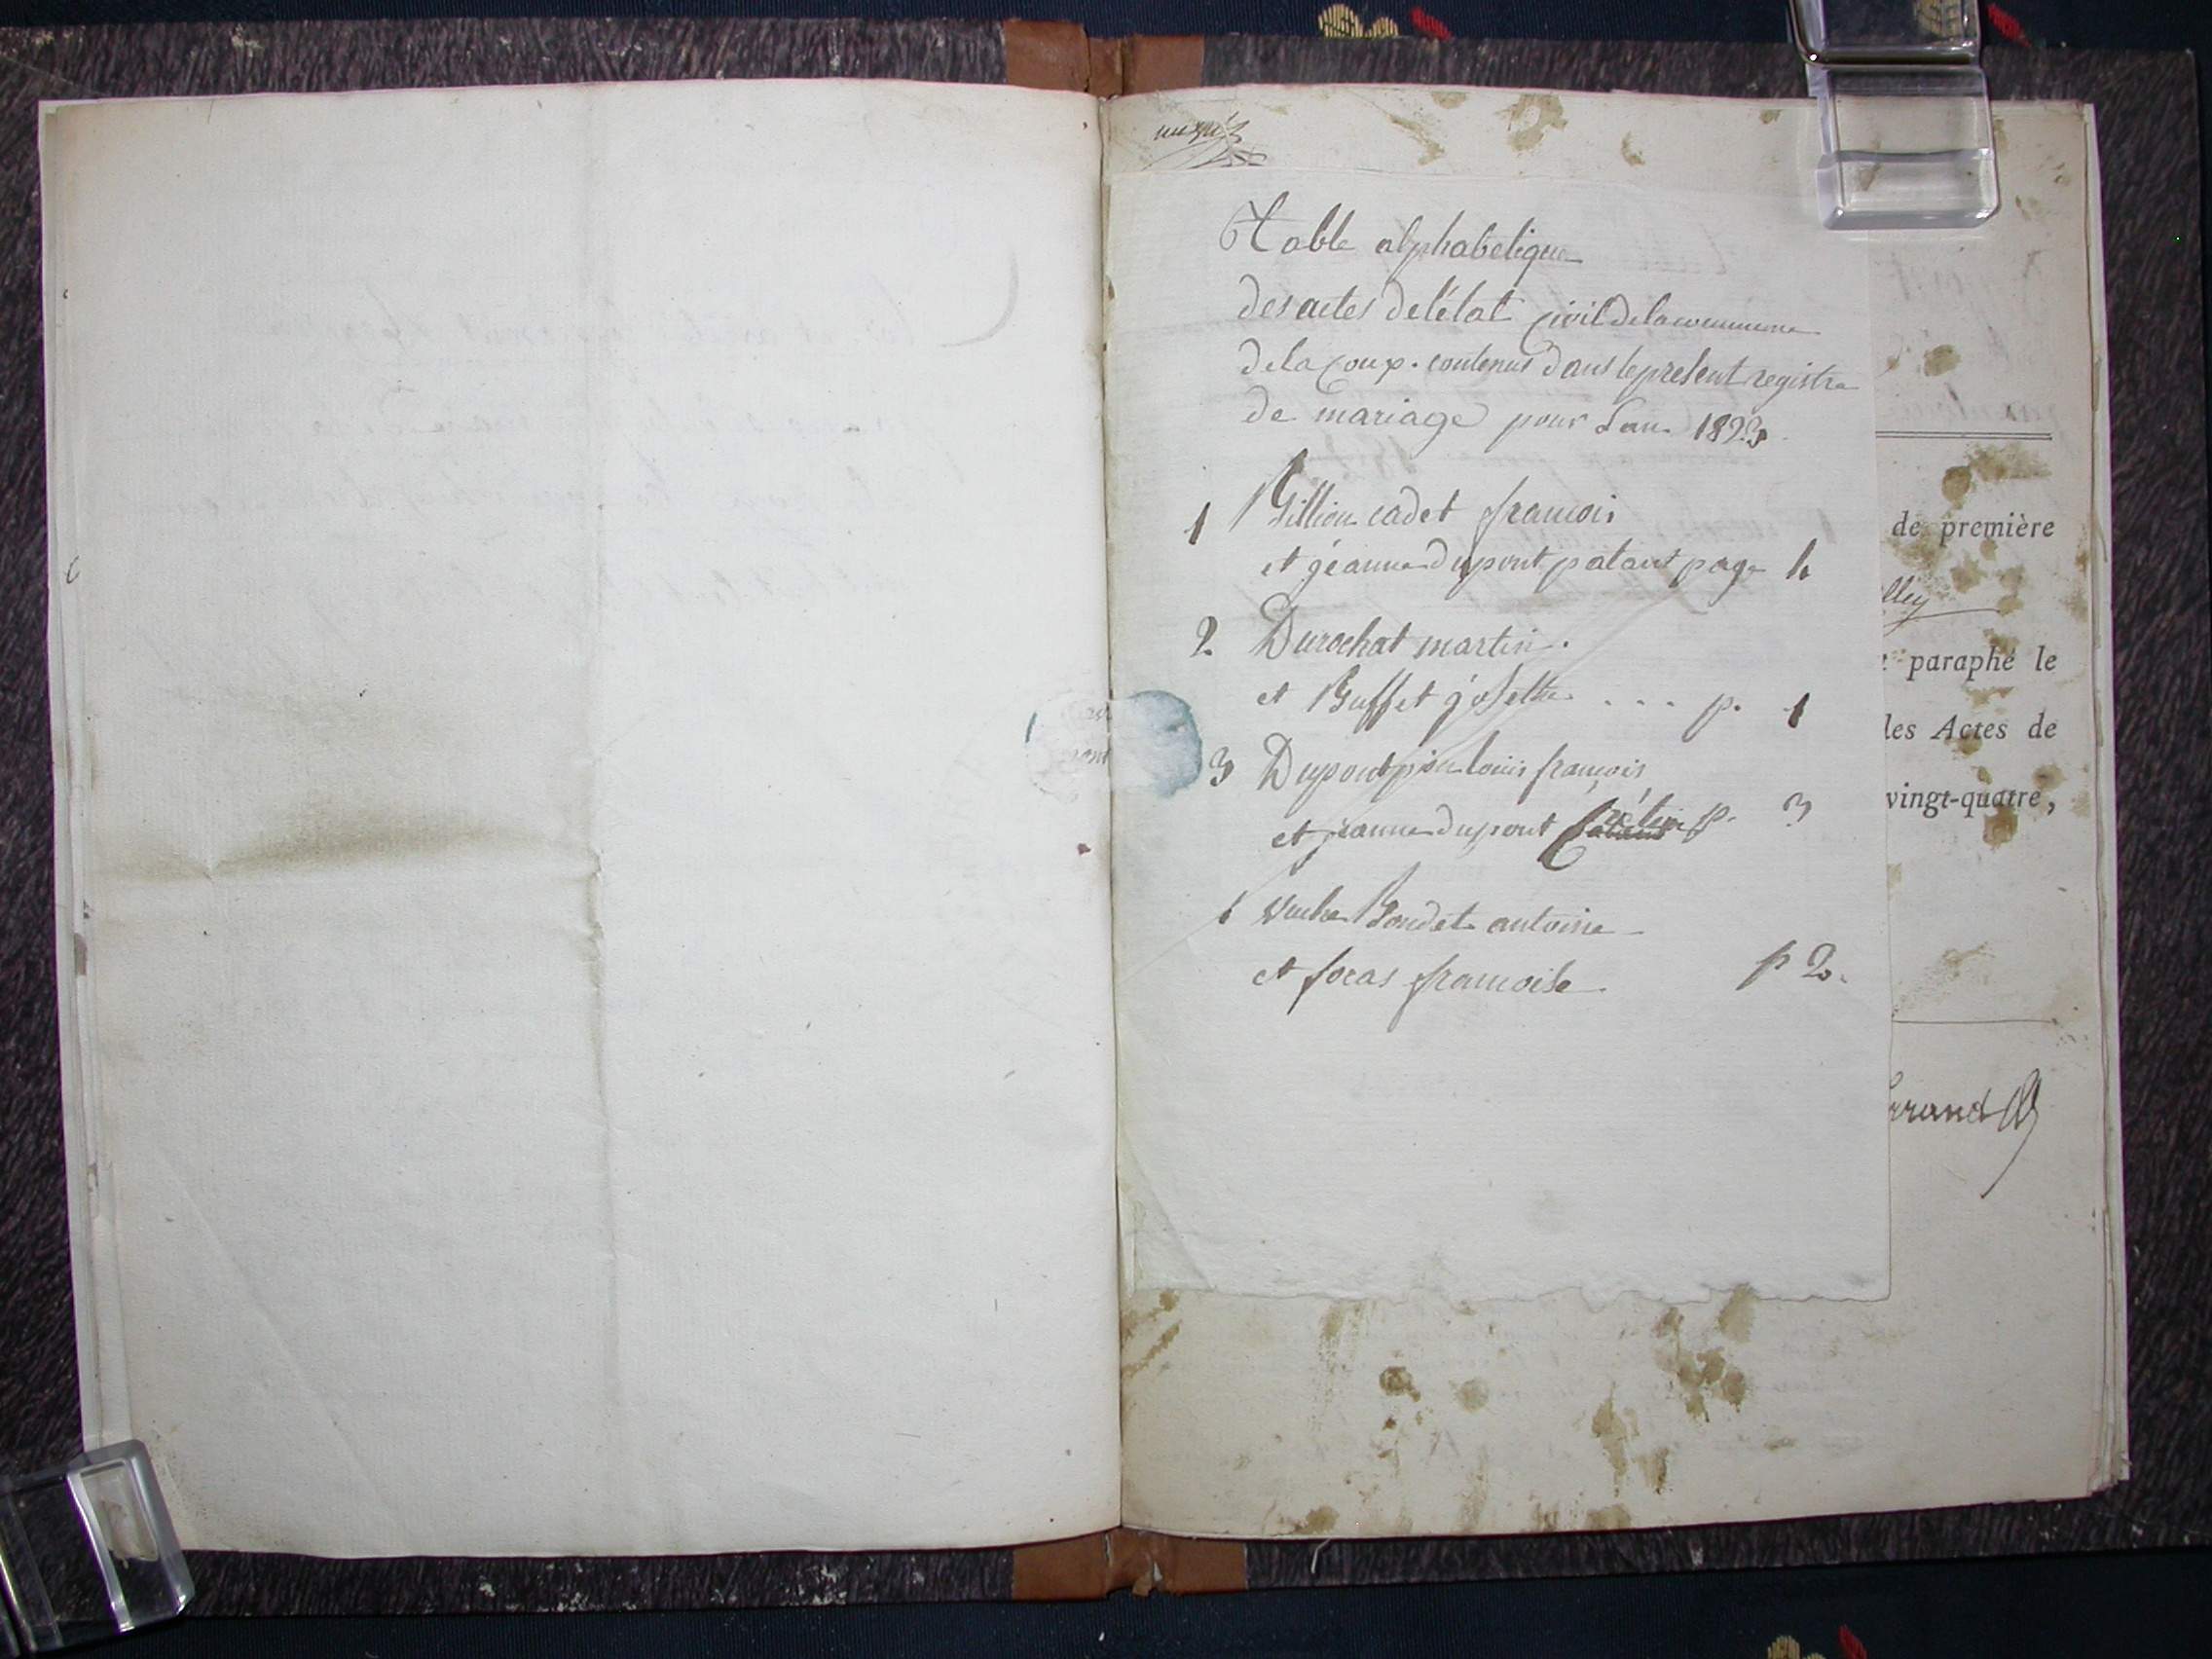 Table alphabetique
des actes de l'état civil de la commune
de la Coux. contenus dans le present registre
de mariage pour Lan 1823
1 Billion cadet francois
et jéanne Dupont patant page 4
2 Durochat martin.
et Buffet josette .... p. 1
3 Dupont louis françois
et jeanne dupont p. 3
4 Bondet antoine
et foras francoise p 2.
de première
lley
paraphé le
les Actes de
vingt-quatre,
rrand